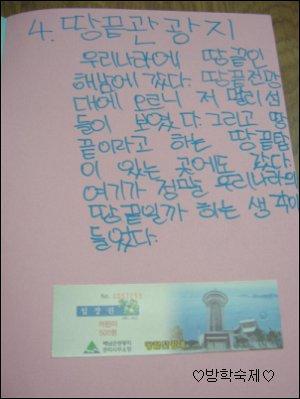 4. 땅끝관광지
우리나라에 땅끝인
해남에 갔다. 땅끝전망
대에 오르니 저 멀리 섬
들이 보였다. 그리고 땅
끝이라고 하는 땅끝탑
이 있는 곳에도 갔다.
여기가 정말 우리나라의
땅끝일까 하는 생각이
들었다.
입장권
어린이
500원
♡방학숙제♡